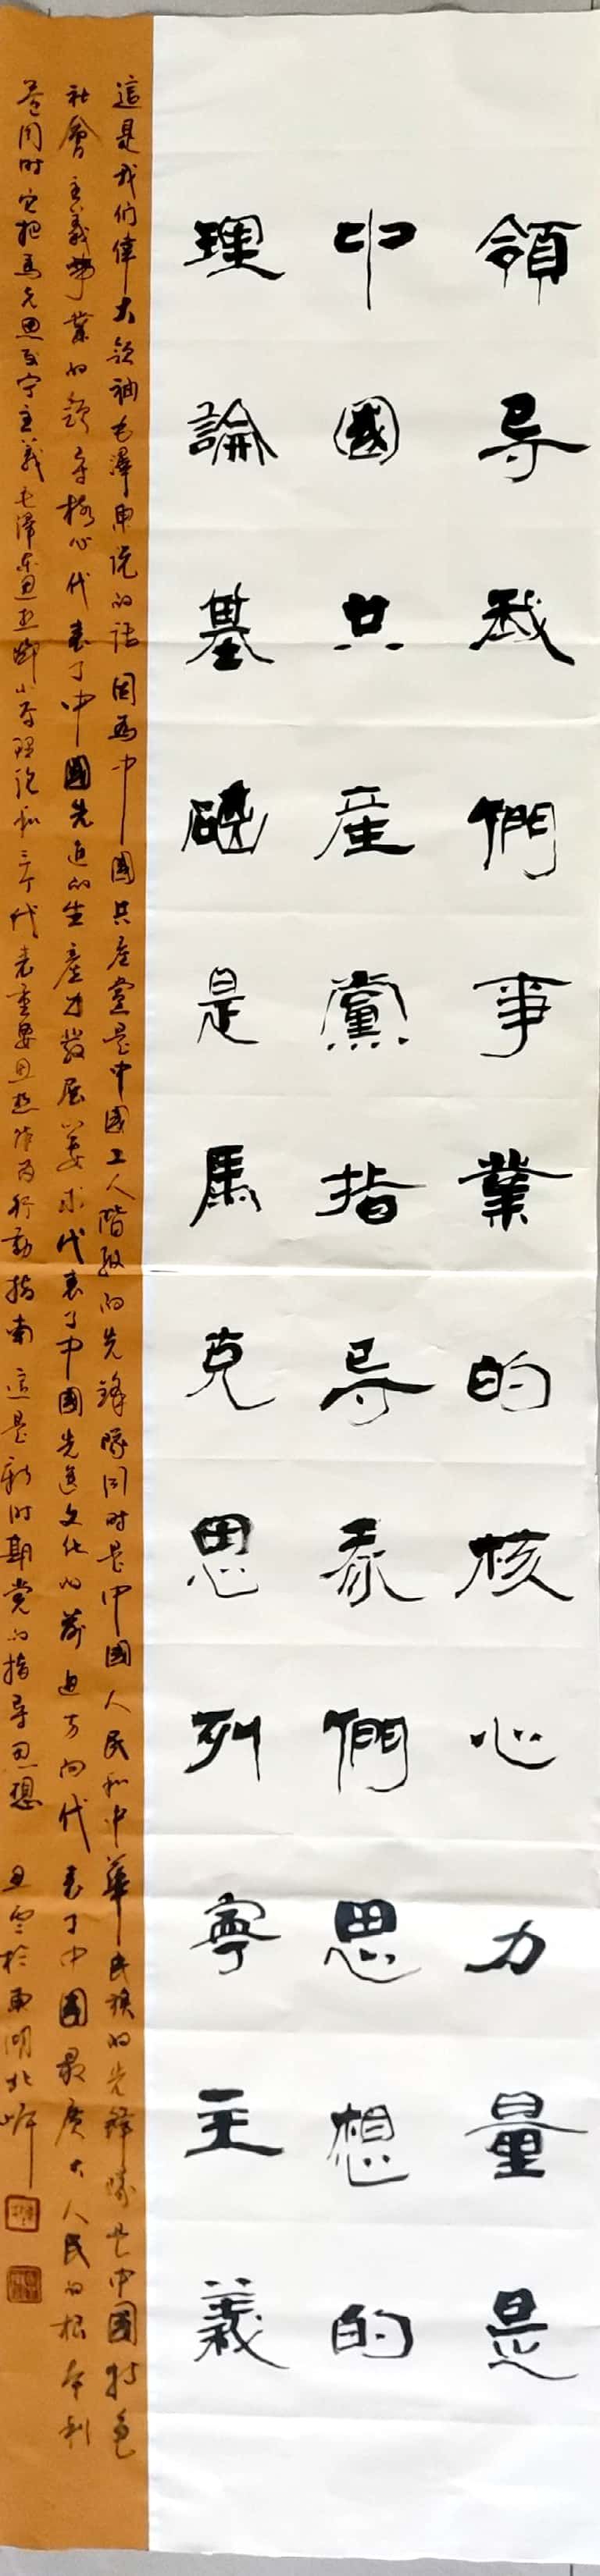 領导我們事業的核心力量是
中國共産黨指导我們思想的
理論基礎是馬克思列寧主義
這是我们偉大领袖毛澤東说的话因為中國共産黨是中國工人階级的先鋒隊同时是中國人民和中華民族的先鋒隊是中國特色
社會主義事業的領导核心代表了中國先進的生産力發展要求代表了中國先進文化的前進方向代表了中國最廣大人民的根本利
益同时它把馬克思列宁主義毛澤东思想鄧小平理论和三个代表重要思想作为行動指南這是新时期党的指导思想 於東湖北岸